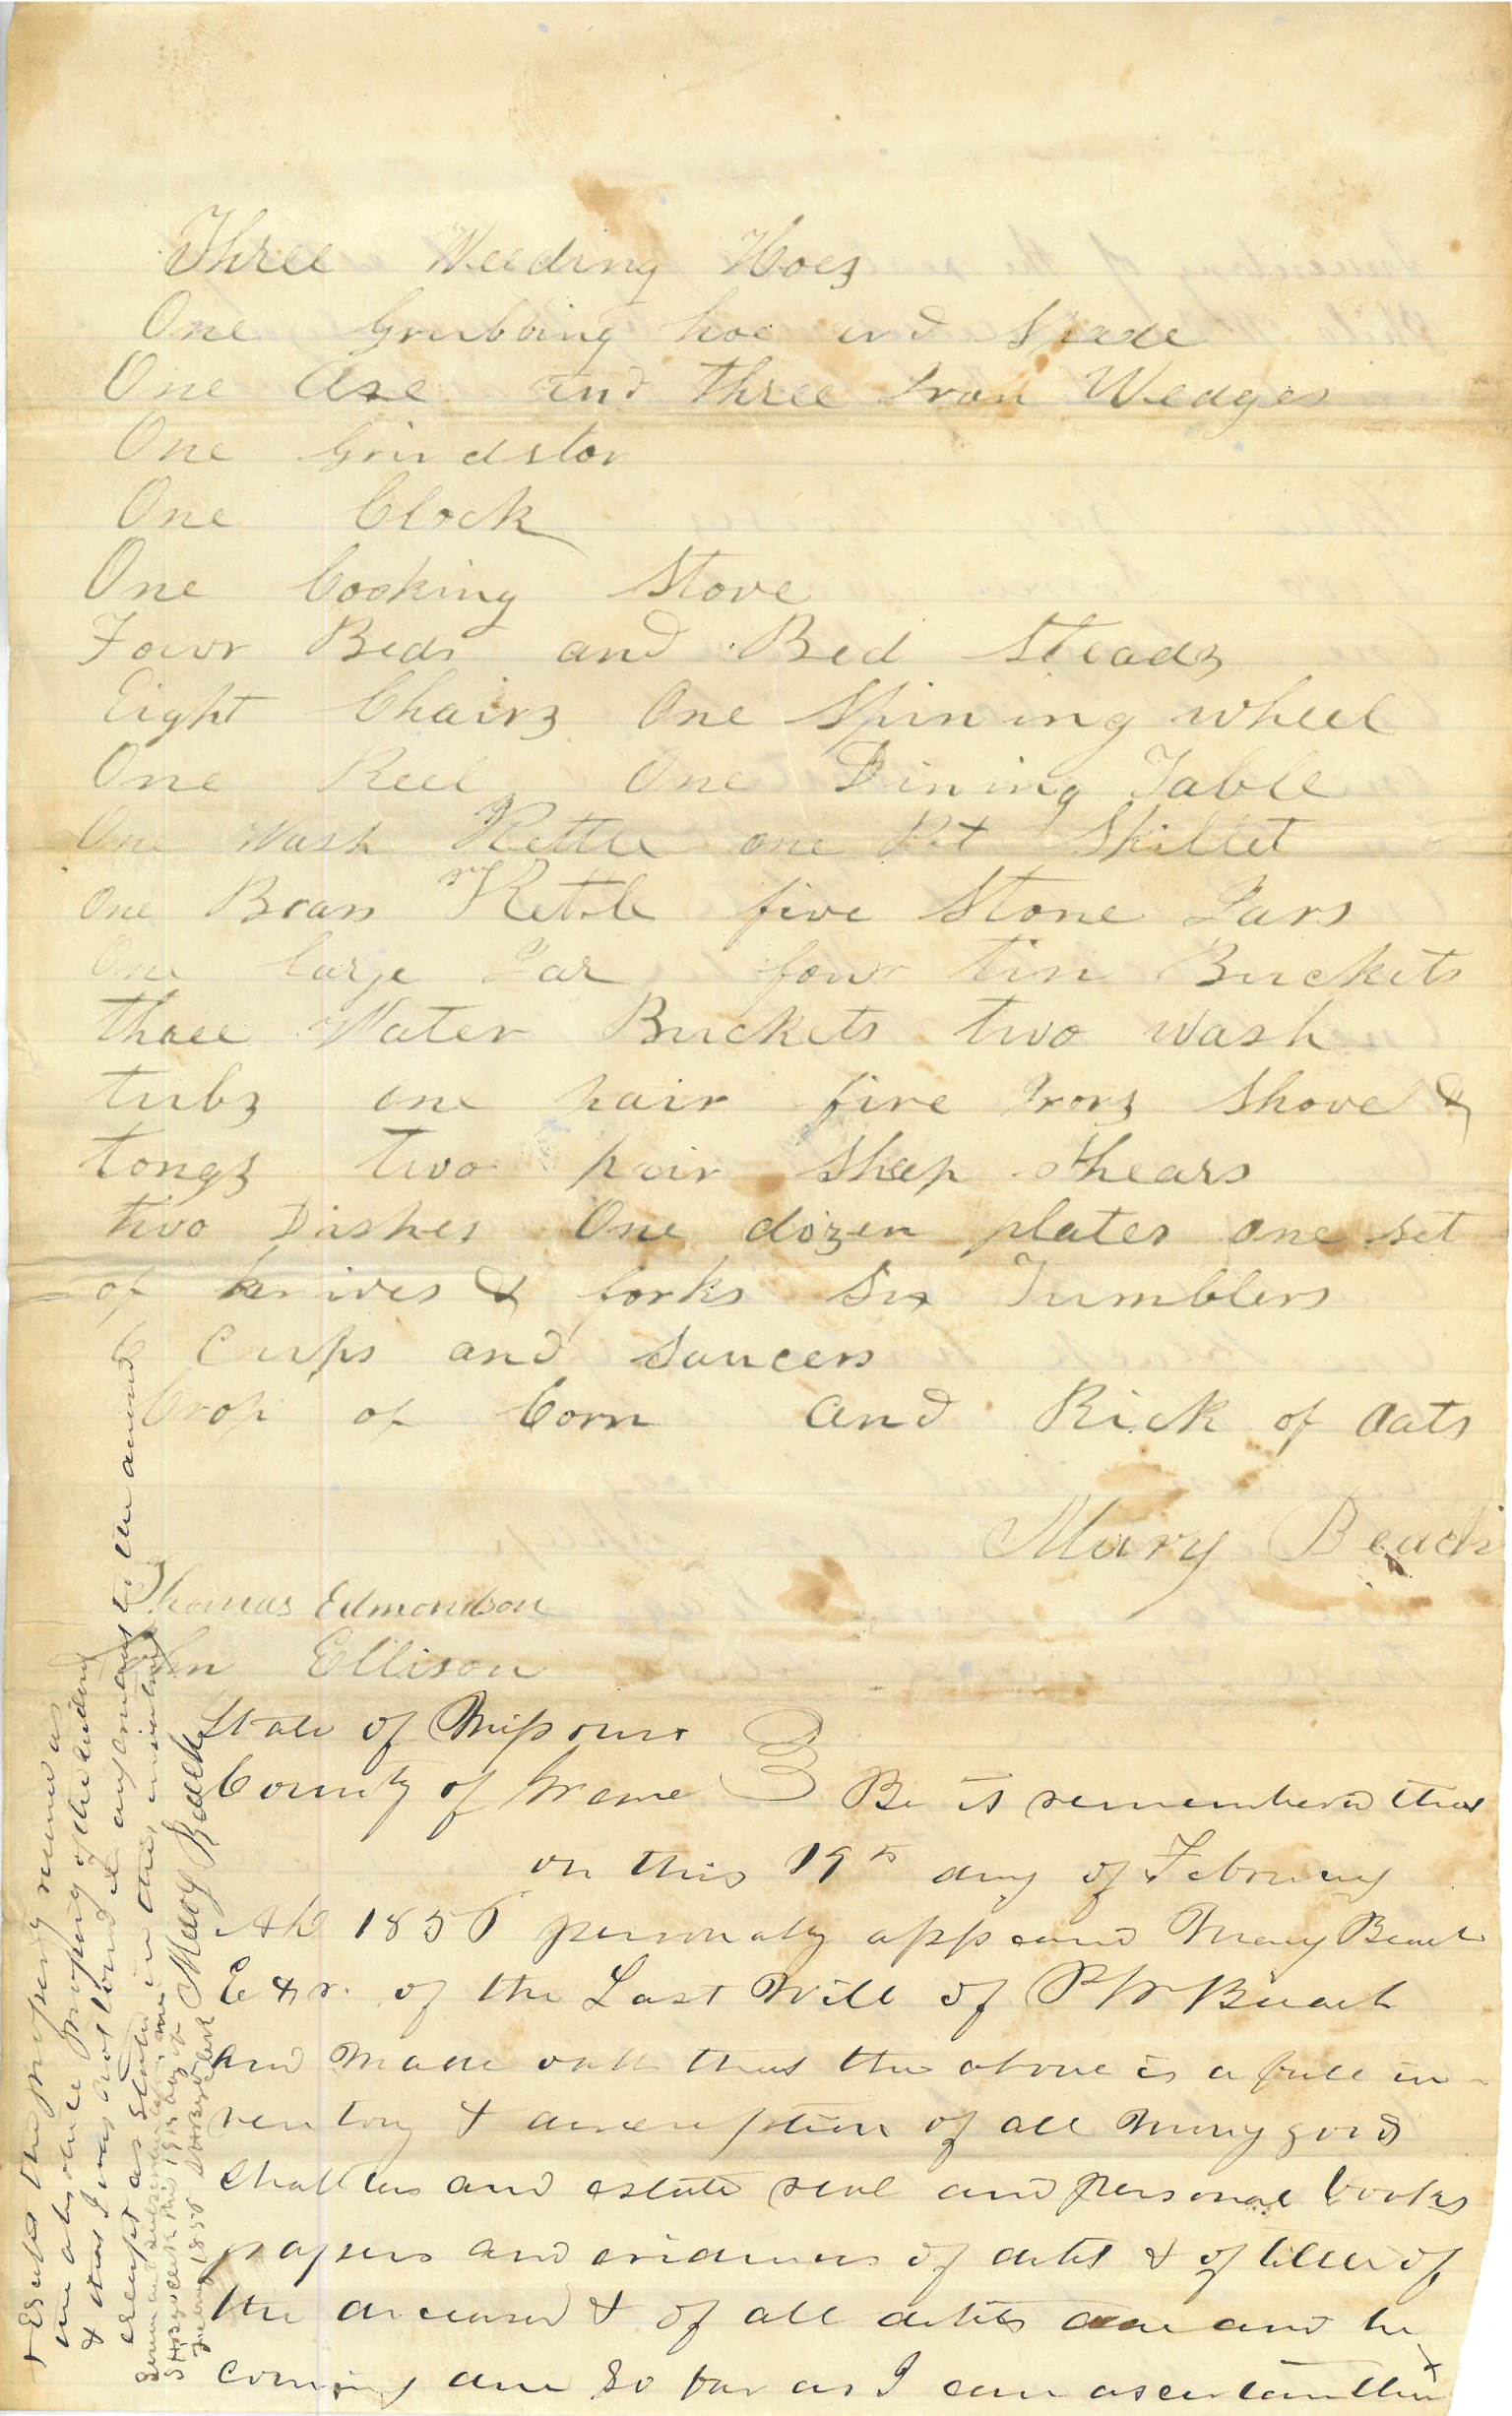 Three Weeding Hoes
One Grubbing hoe and Spade
One Axe and three Iron Wedges
One Grindston
One Clock
One Cooking Stove
Four Beds and Bed Steads
Eight Chairs One Spining wheel
One Reel One Dining Table
One Wash Kettle one Pot Skillet
One Brass Kettle five Stone Jars
One large Jar four tin Buckets
three Water Buckets two wash
tubs one pair fire Irons Shovel &
tongs two pair Sheep Shears
two Dishes One dozen plates one set
of knives & forks Six Tumblers
6 Cups and Saucers
Crop of Corn and Rick of Oats
Mary Beach
Thomas Edmondson
John Ellison
State of Missouri
County of Be it remembered that
on this 19th day of February
AD personally appeared Mary Beach
Extr. of the Last Will of P W Beach
and made oath that the above is a full in-
ventory & description of all money goods
Chattles and estate real and personal books
papers and evidences of debts & of titles of
the deceased & of all debts due and be
coming due so far as I can ascertain them
+ Estate the property named as
the absolute property of the
& that I was not bound in any contract to the
except as Stated in this inventory
Mary Beach
Sworn and subscribed before me
this 19th day of